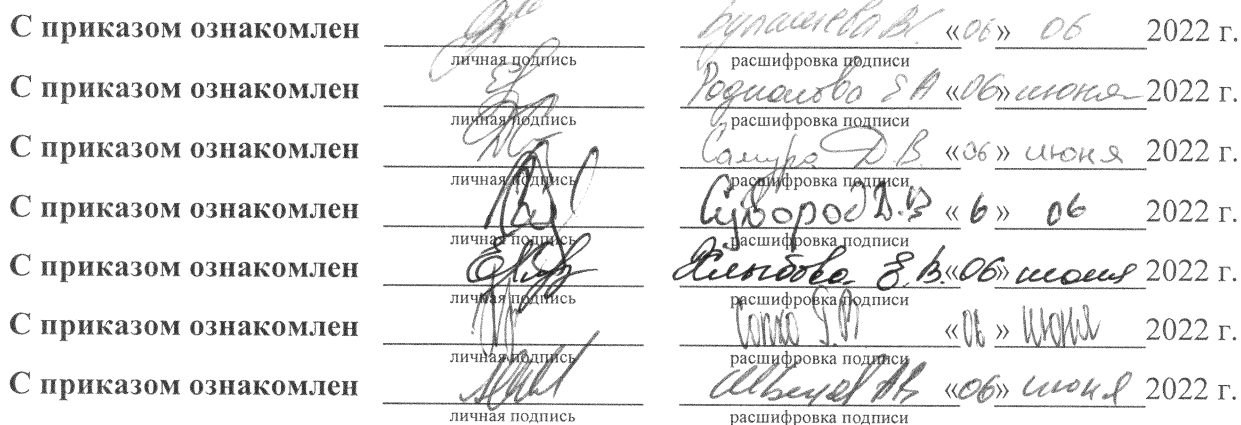 С приказом ознакомлен «06» 06 2022 г.
личная подпись расшифровка подписи
С приказом ознакомлен Родионова Е А «06» июня 2022 г.
личная подпись расшифровка подписи
С приказом ознакомлен Самура Д.В. «06» июня 2022 г.
личная подпись расшифровка подписи
С приказом ознакомлен Д.В «6» 06 2022 г.
личная подпись расшифровка подписи
С приказом ознакомлен Е.В. «06» июня 2022 г.
личная подпись расшифровка подписи
С приказом ознакомлен «06» июня 2022 г.
личная подпись расшифровка подписи
С приказом ознакомлен «06» июня 2022 г.
личная подпись расшифровка подписи